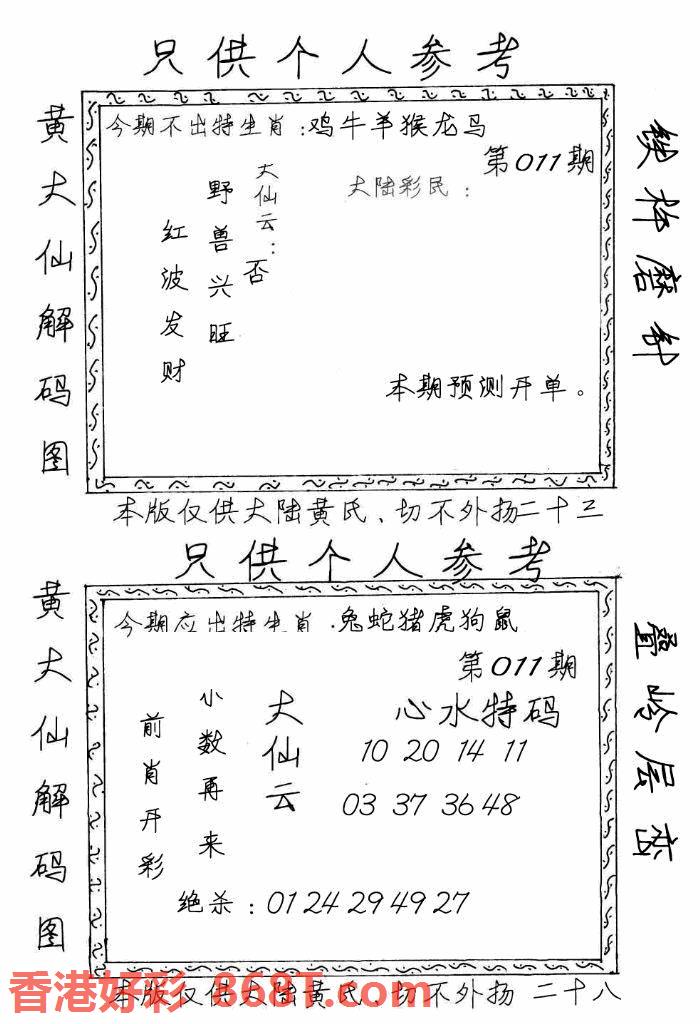 只供个人参考
黄大仙解码图
今期不出特生肖：鸡牛羊猴龙马
第011期
大仙云：否
野兽兴旺
红波发财
大陆彩民：
本期预测开单。
铁杵磨针
本版仅供大陆黄氏、切不外扬二十三
只供个人参考
黄大仙解码图
今期应出特生肖：兔蛇猪虎狗鼠
第011期
大仙云
小数再来
前肖开彩
心水特码
10 20 14 11
03 37 36 48
绝杀：01 24 29 49 27
叠岭层峦
本版仅供大陆黄氏、切不外扬 二十八
香港好彩 868T.com